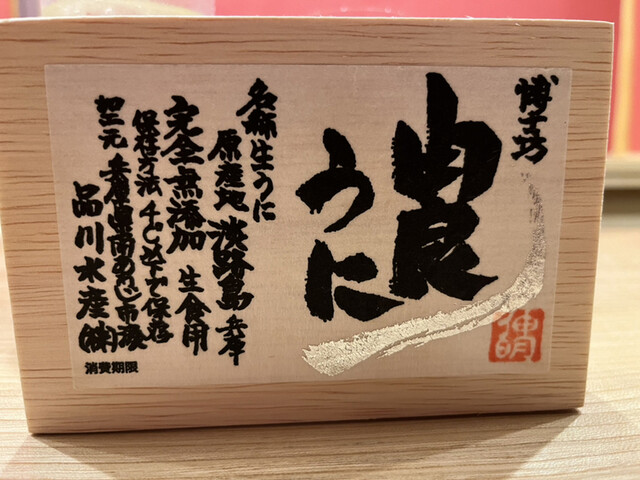 博士坊
うに
名称生うに
原産地 淡路島 兵庫
完全無添加 生食用
保存方法 チルド以下で保存
加工元 兵庫県南あわじ市
品川水産㈱
消費期限